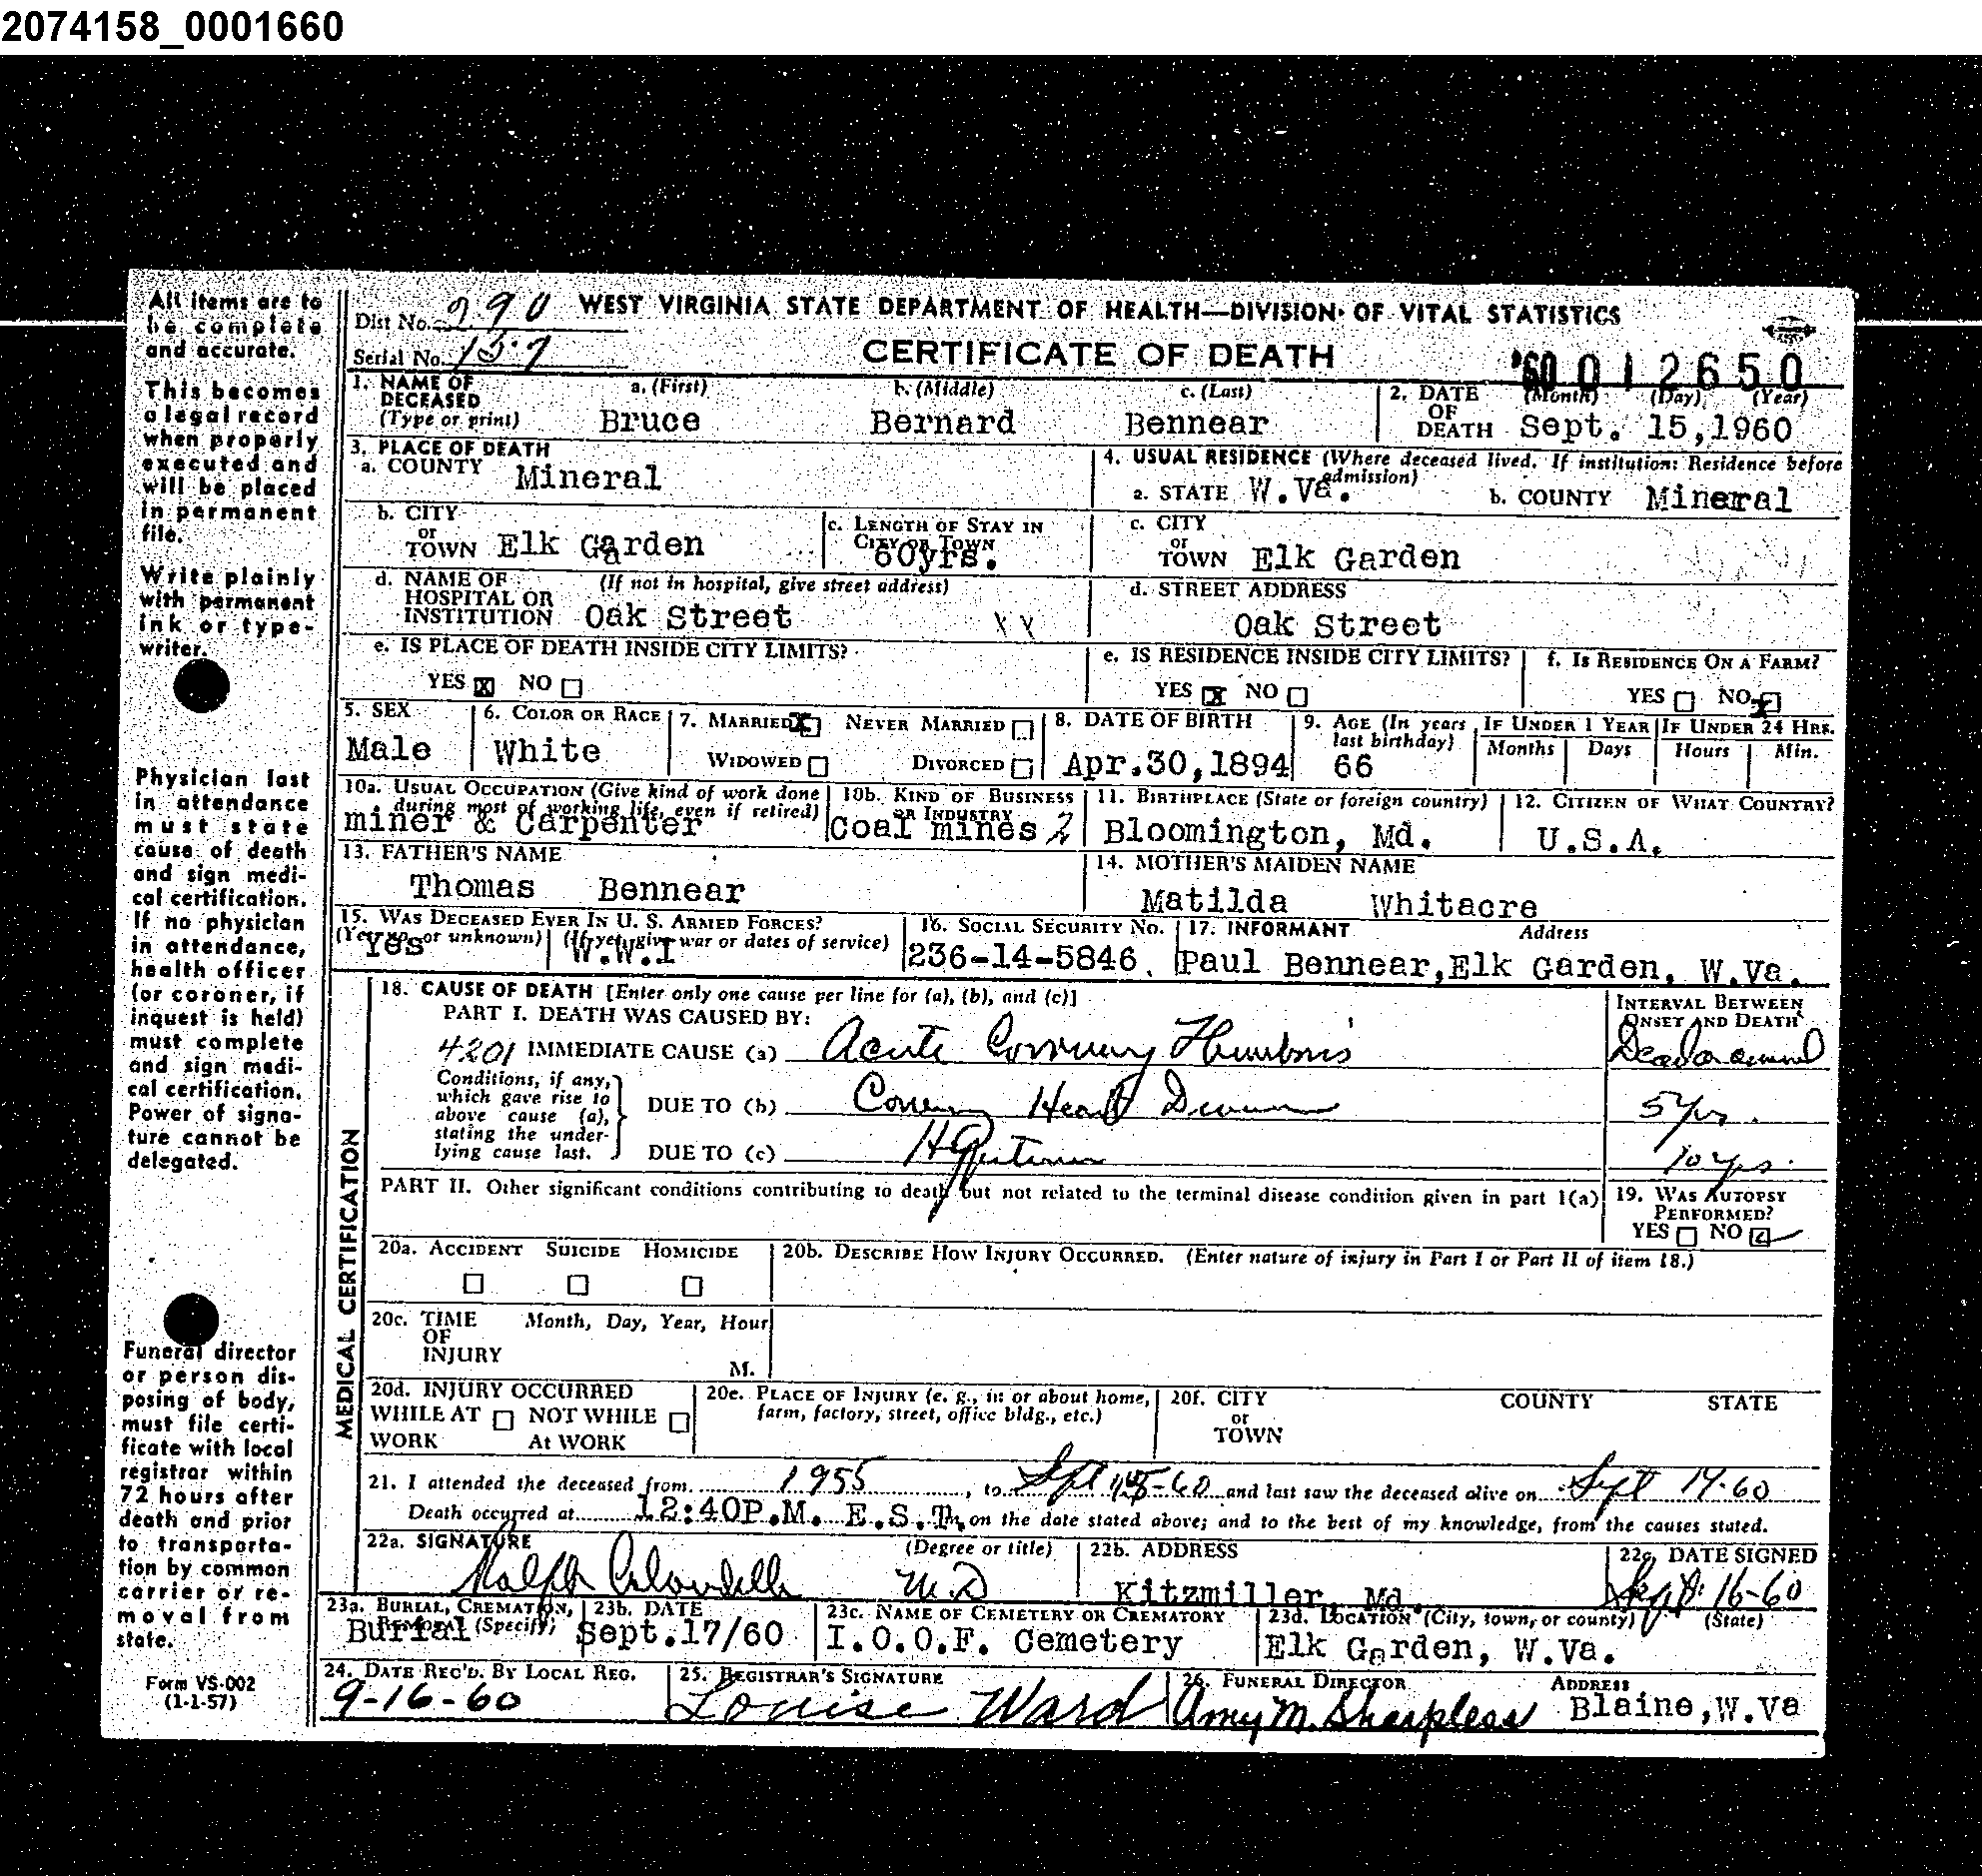 2074158_0001660
All items are to
be complete
and accurate.
This becomes
a legal record
when properly
executed and
will be placed
in permanent
file.
Write plainly
with permanent
ink or type-
writer.
Physician last
in attendance
must state
cause of death
and sign medi-
cal certification.
If no physician
in attendance,
health officer
(or coroner, if
inquest is held)
must complete
and sign medi-
cal certification.
Power of signa-
ture cannot be
delegated.
Funeral director
or person dis-
posing of body,
must file certi-
ficate with local
registrar within
72 hours after
death and prior
to transporta-
tion by common
carrier or re-
moval from
state.
Form VS-002
(1-1-57)
Dist No. 290 WEST VIRGINIA STATE DEPARTMENT OF HEALTH—DIVISION OF VITAL STATISTICS
Serial No. 157 CERTIFICATE OF DEATH '60 012650
1. NAME OF DECEASED (Type or print) a. (First) b. (Middle) c. (Last) 2. DATE OF DEATH (Month) (Day) (Year)
Bruce Bernard Bennear Sept. 15,1960
3. PLACE OF DEATH
a. COUNTY Mineral
4. USUAL RESIDENCE (Where deceased lived. If institution: Residence before admission)
a. STATE W.Va. b. COUNTY Mineral
b. CITY or TOWN Elk Garden c. LENGTH OF STAY IN CITY OR TOWN 60yrs.
c. CITY or TOWN Elk Garden
d. NAME OF HOSPITAL OR INSTITUTION (If not in hospital, give street address) Oak Street
d. STREET ADDRESS
Oak Street
e. IS PLACE OF DEATH INSIDE CITY LIMITS?
YES X NO
e. IS RESIDENCE INSIDE CITY LIMITS? f. IS RESIDENCE ON A FARM?
YES X NO YES NO X
5. SEX 6. COLOR OR RACE 7. MARRIED X NEVER MARRIED 8. DATE OF BIRTH 9. AGE (In years last birthday) IF UNDER 1 YEAR IF UNDER 24 HRS.
Months Days Hours Min.
Male White WIDOWED DIVORCED Apr.30,1894 66
10a. USUAL OCCUPATION (Give kind of work done during most of working life, even if retired) 10b. KIND OF BUSINESS OR INDUSTRY 11. BIRTHPLACE (State or foreign country) 12. CITIZEN OF WHAT COUNTRY?
miner & Carpenter Coal mines 2 Bloomington, Md. U.S.A.
13. FATHER'S NAME 14. MOTHER'S MAIDEN NAME
Thomas Bennear Matilda Whitacre
15. WAS DECEASED EVER IN U. S. ARMED FORCES? 16. SOCIAL SECURITY NO. 17. INFORMANT Address
(Yes, no, or unknown) (If yes, give war or dates of service)
Yes W.W.I 236-14-5846 Paul Bennear,Elk Garden, W.Va.
MEDICAL CERTIFICATION
18. CAUSE OF DEATH [Enter only one cause per line for (a), (b), and (c)] INTERVAL BETWEEN ONSET AND DEATH
PART I. DEATH WAS CAUSED BY:
4201 IMMEDIATE CAUSE (a) Acute Coronary Thrombosis
Conditions, if any, which gave rise to above cause (a), stating the underlying cause last.
DUE TO (b) Coronary Heart Disease 5 yrs.
DUE TO (c) Hypertension 10 yrs.
PART II. Other significant conditions contributing to death but not related to the terminal disease condition given in part I(a) 19. WAS AUTOPSY PERFORMED?
YES NO
20a. ACCIDENT SUICIDE HOMICIDE 20b. DESCRIBE HOW INJURY OCCURRED. (Enter nature of injury in Part I or Part II of item 18.)
20c. TIME OF INJURY Month, Day, Year, Hour
M.
20d. INJURY OCCURRED 20e. PLACE OF INJURY (e. g., in or about home, farm, factory, street, office bldg., etc.) 20f. CITY or TOWN COUNTY STATE
WHILE AT WORK NOT WHILE At WORK
21. I attended the deceased from 1955, to Sept 15-60 and last saw the deceased alive on Sept 14-60
Death occurred at 12:40P.M. E.S.T. on the date stated above; and to the best of my knowledge, from the causes stated.
22a. SIGNATURE (Degree or title) 22b. ADDRESS 22c. DATE SIGNED
Ralph Calandrella M.D Kitzmiller, Md. Sept. 16-60
23a. BURIAL, CREMATION, REMOVAL (Specify) 23b. DATE 23c. NAME OF CEMETERY OR CREMATORY 23d. LOCATION (City, town, or county) (State)
Burial Sept.17/60 I.O.O.F. Cemetery Elk Garden, W.Va.
24. DATE REC'D. BY LOCAL REG. 25. REGISTRAR'S SIGNATURE 26. FUNERAL DIRECTOR ADDRESS
9-16-60 Louise Ward Amy M. Sharpless Blaine,W.Va